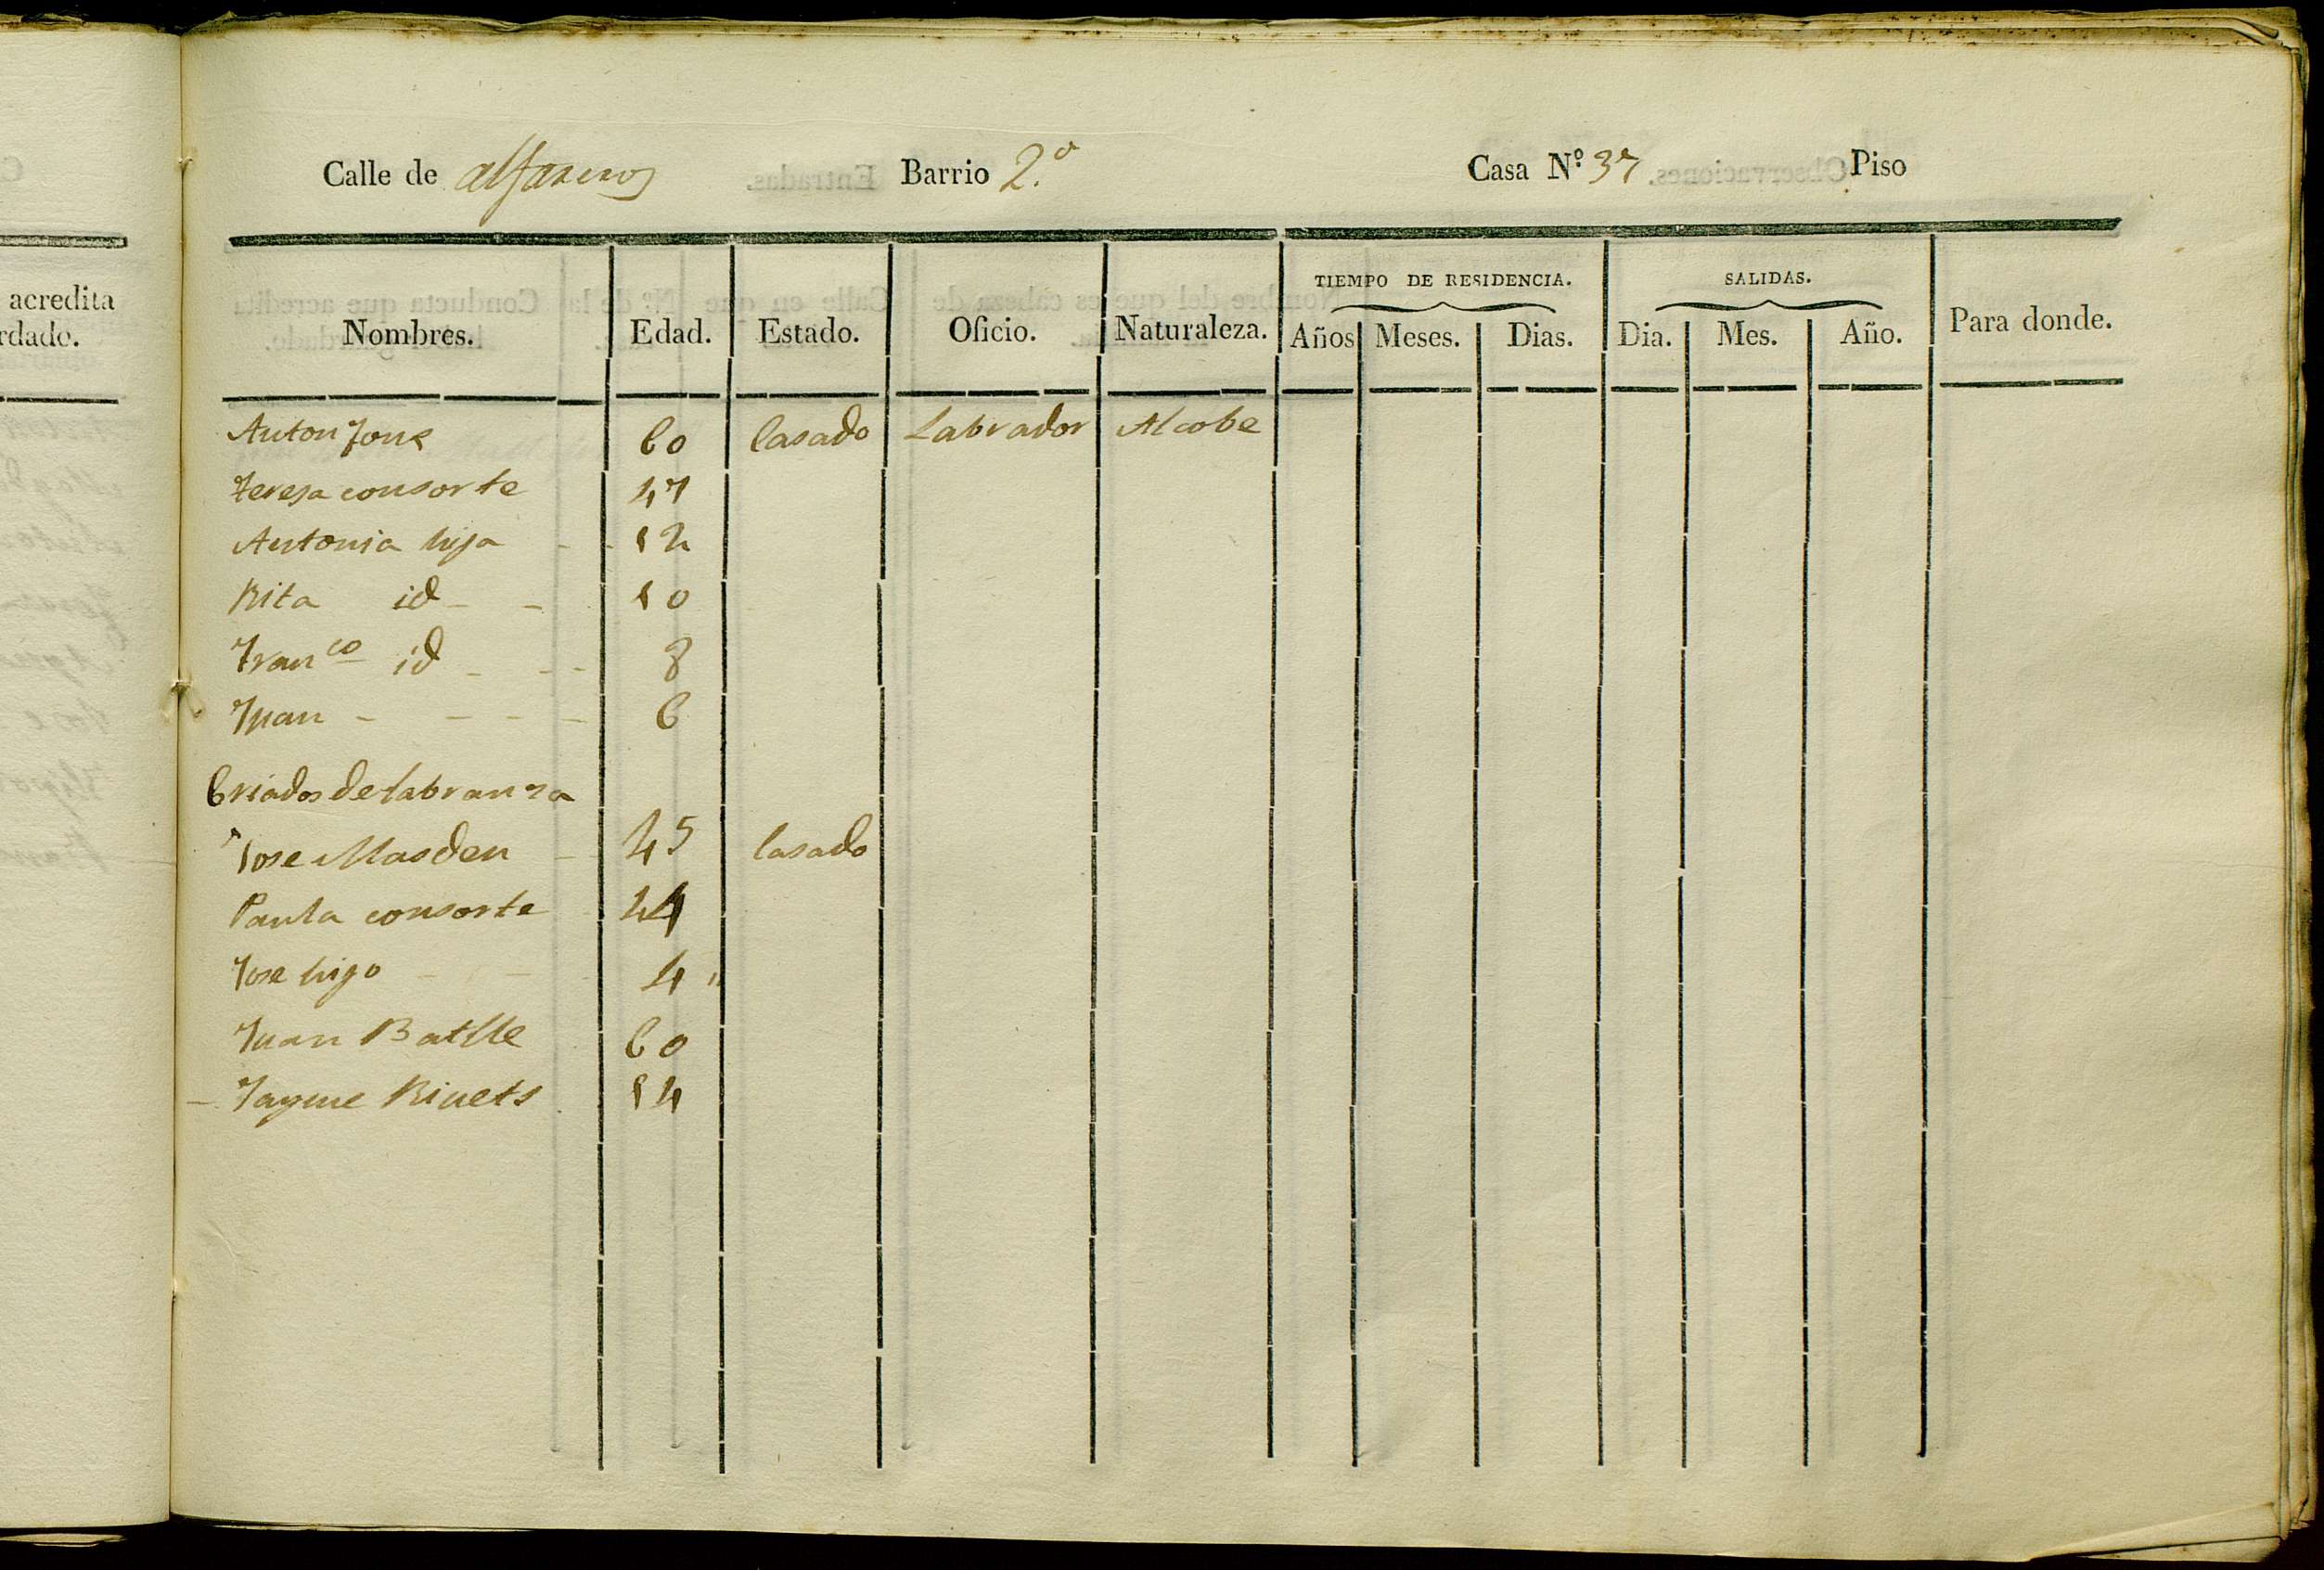 acredita
rdado.
Calle de alfareros Barrio 2.º Casa N.º 37 Piso
TIEMPO DE RESIDENCIA. SALIDAS.
Nombres. Edad. Estado. Oficio. Naturaleza. Años Meses. Dias. Dia. Mes. Año. Para donde.
Anton 60 Casado Labrador Alcobe
Teresa consorte 47
Antonia hija - - 12
Rita id - - 10
Franco id - - - 8
Juan - - - - 6
Criados de labranza
Jose Masdeu - 45 Casado
Paula consorte 44
Jose hijo - - 4
Juan Batlle 60
- Jayme 14